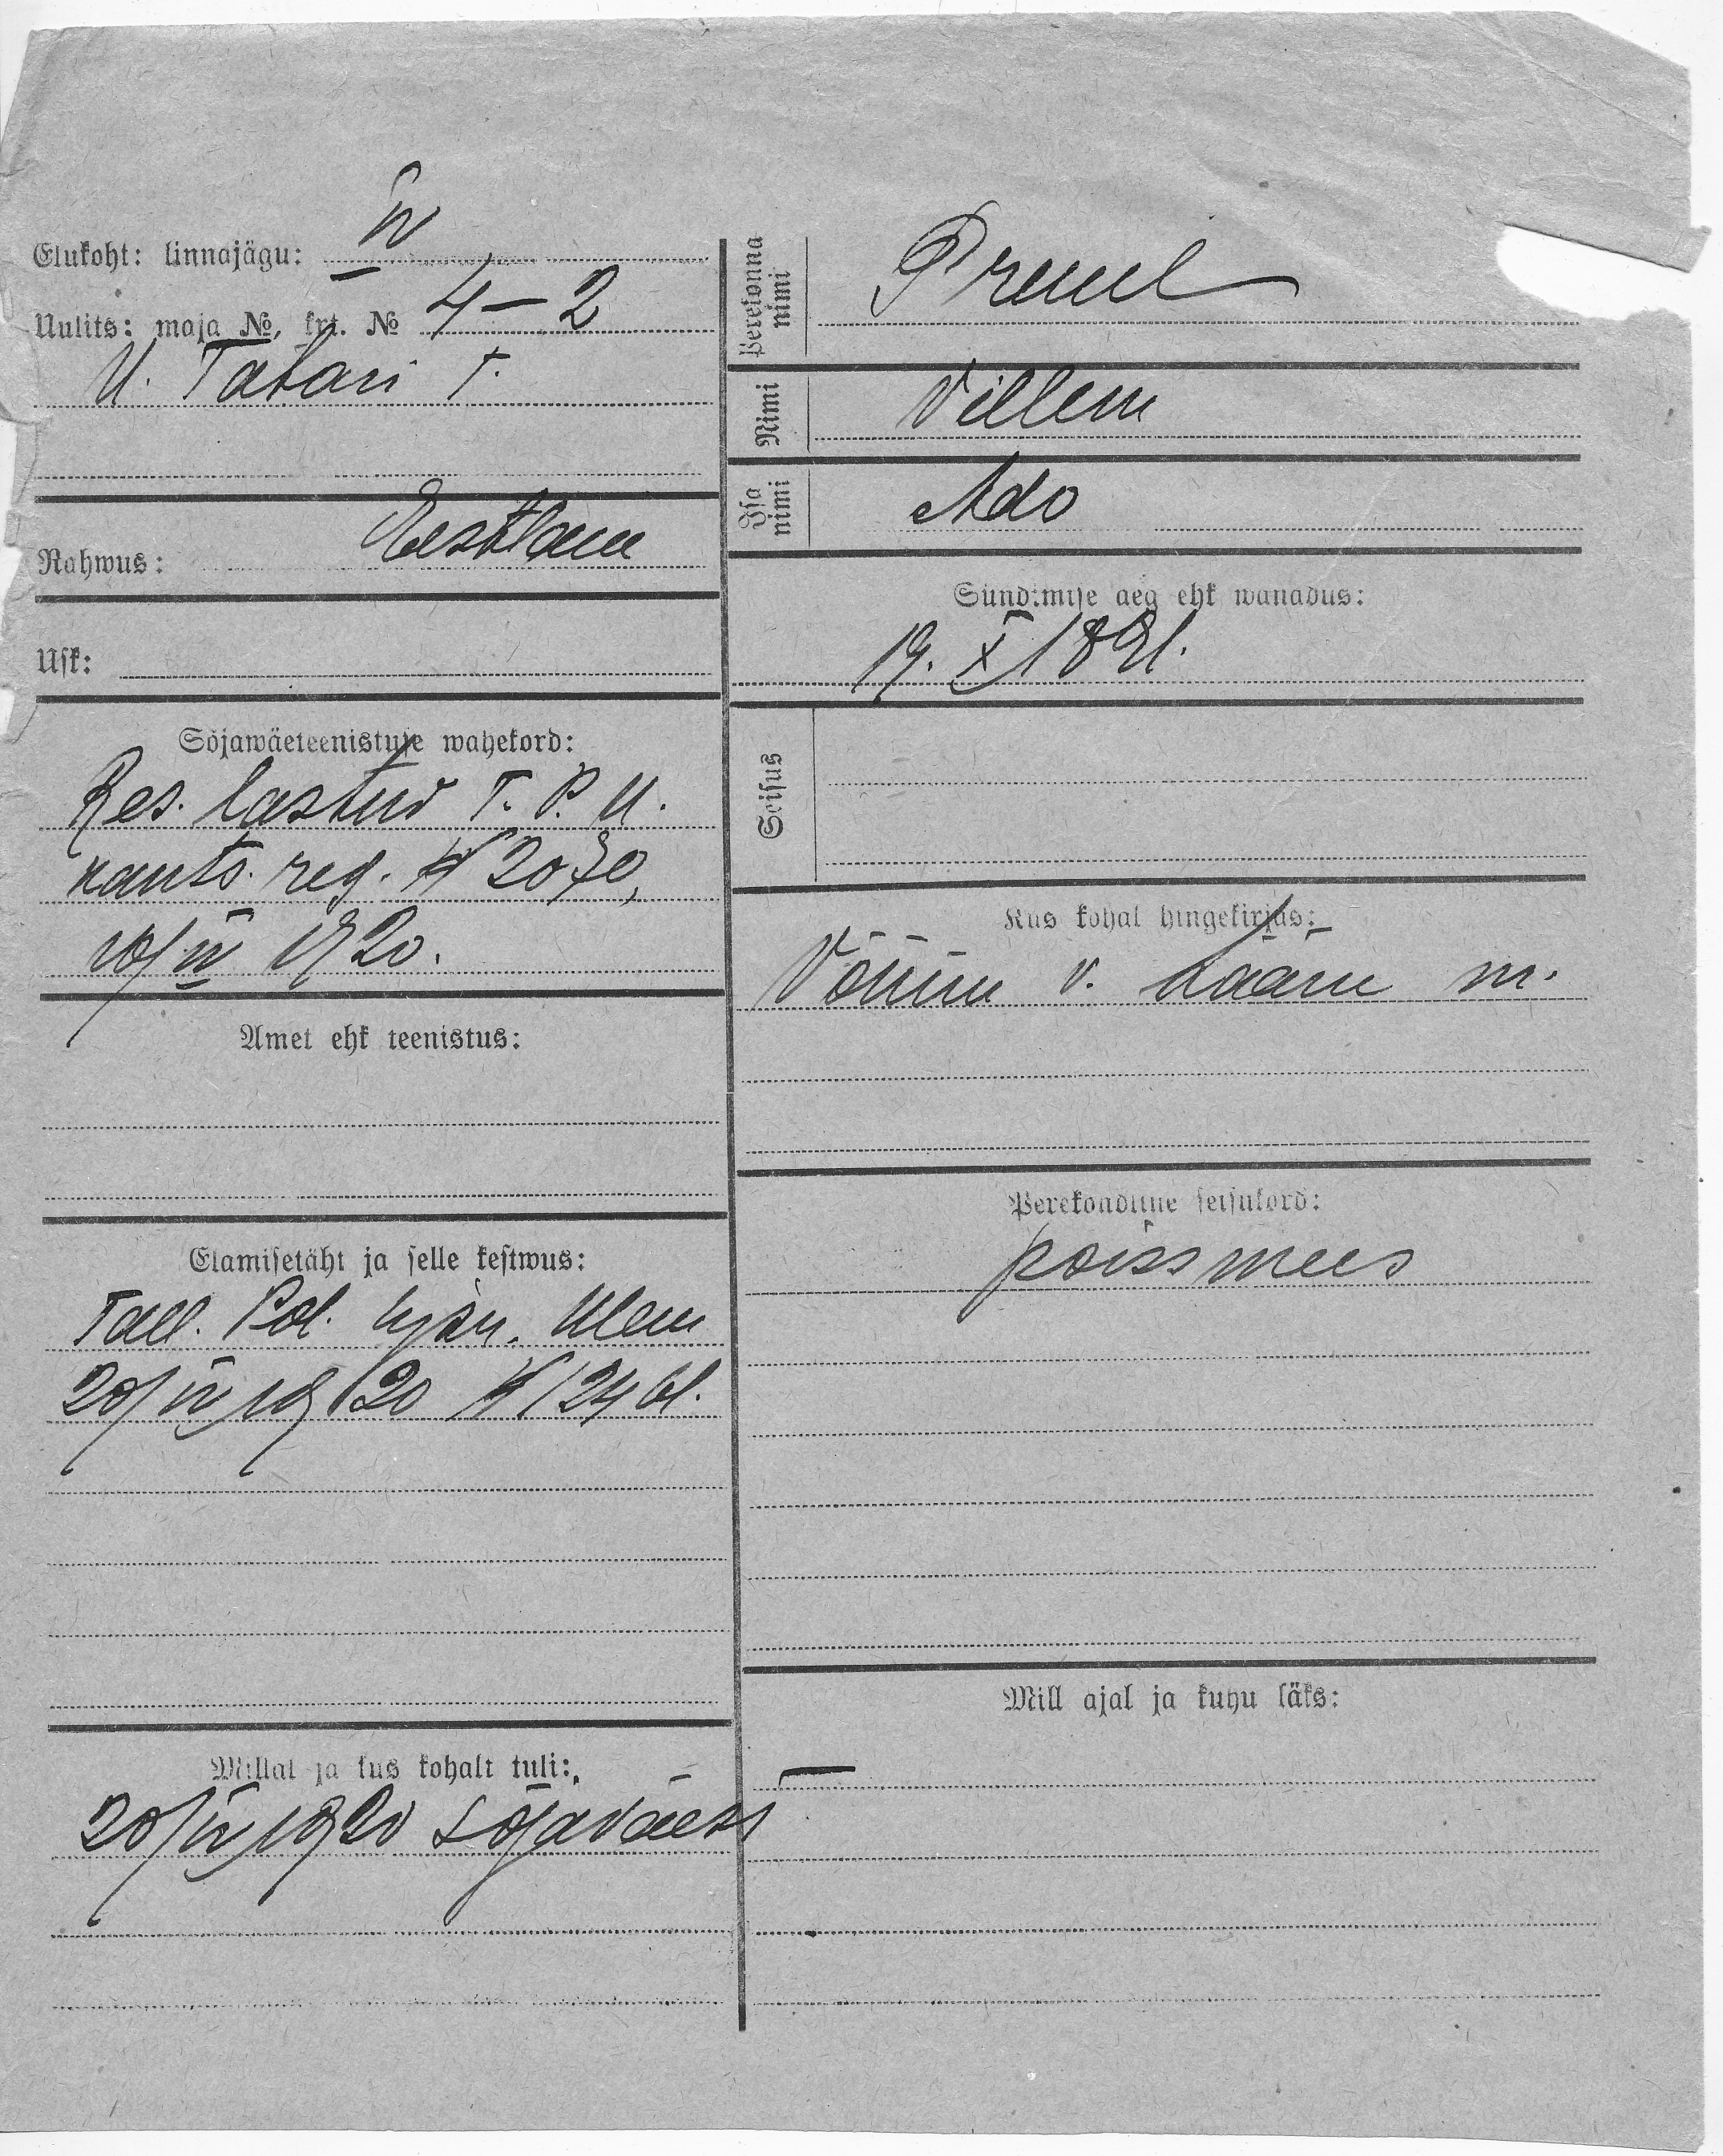 Elukoht: linnajägu: IV
Uulits: maja №, krt. № 4–2
U. Tatari t.
Rahwus: Eestlane
Usk:
Sõjawäeteenistuse wahekord:
Res. lastud T. P. Ü.
kants. reg. № 2070,
10/IV 1920.
Amet ehk teenistus:
Elamisetäht ja selle kestwus:
Tall. Pol. Ülem
20/IV 1920 №
Millal ja kus kohalt tuli:
20/IV 1920 sõjaväest
Perekonna nimi
Preuel
Nimi
Villem
Isa nimi
Ado
Sündimise aeg ehk wanadus:
19. X 1891.
Seisus
Kus kohal hingekirjas:
Võnnu v. Lääne m.
Perekondline seisukord:
poissmees
Mill ajal ja kuhu läks: